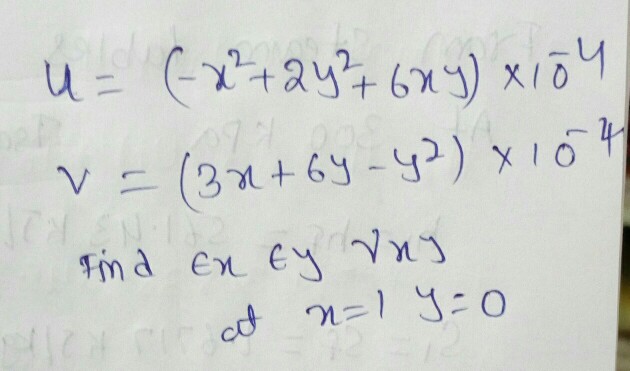 u = (-x²+2y²+6xy) ×10⁻⁴
v = (3x+6y-y²) ×10⁻⁴
Find ϵx ϵy γxy
at x=1 y=0